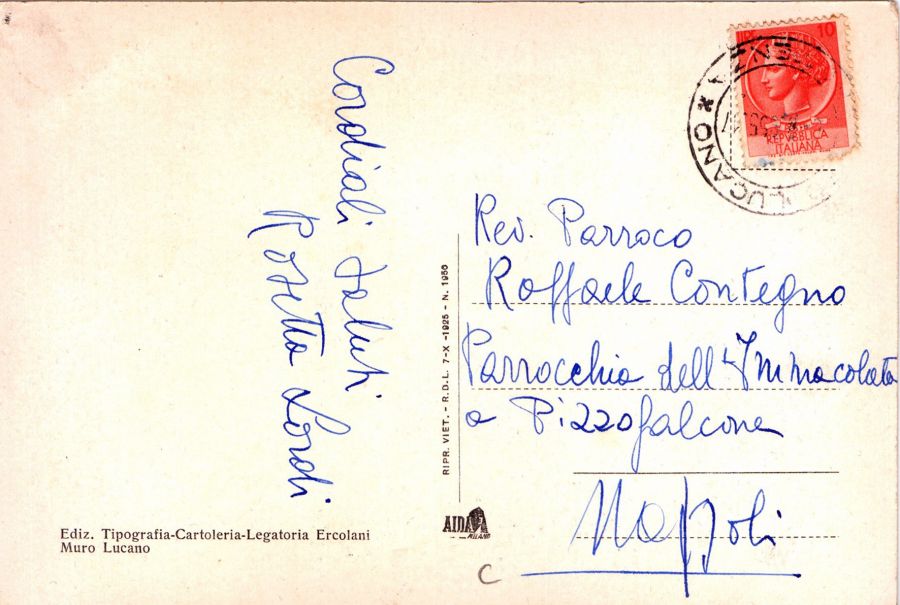 Cordiali saluti
Rosetta Lordi
LIRE 10
REPVBBLICA
ITALIANA
LUCANO
Rev. Parroco
Raffaele Contegno
Parrocchia dell'Immacolata
a Pizzofalcone
Napoli
RIPR. VIET. - R.D.L. 7-X-1925 - N. 1950
AIDA
MILANO
Ediz. Tipografia-Cartoleria-Legatoria Ercolani
Muro Lucano
C